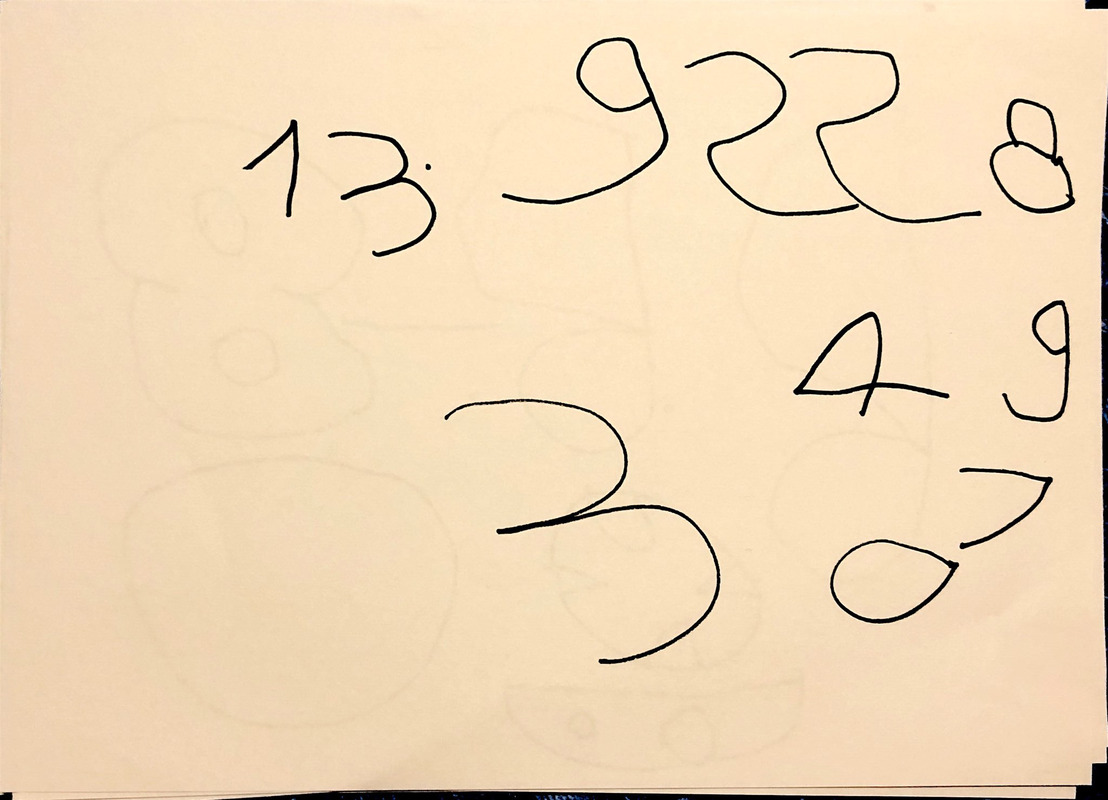 13. 9228
49
307